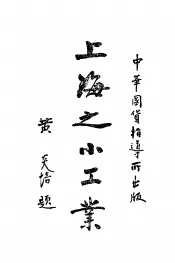 中華國貨指導所出版
上海之小工業
黃炎培題